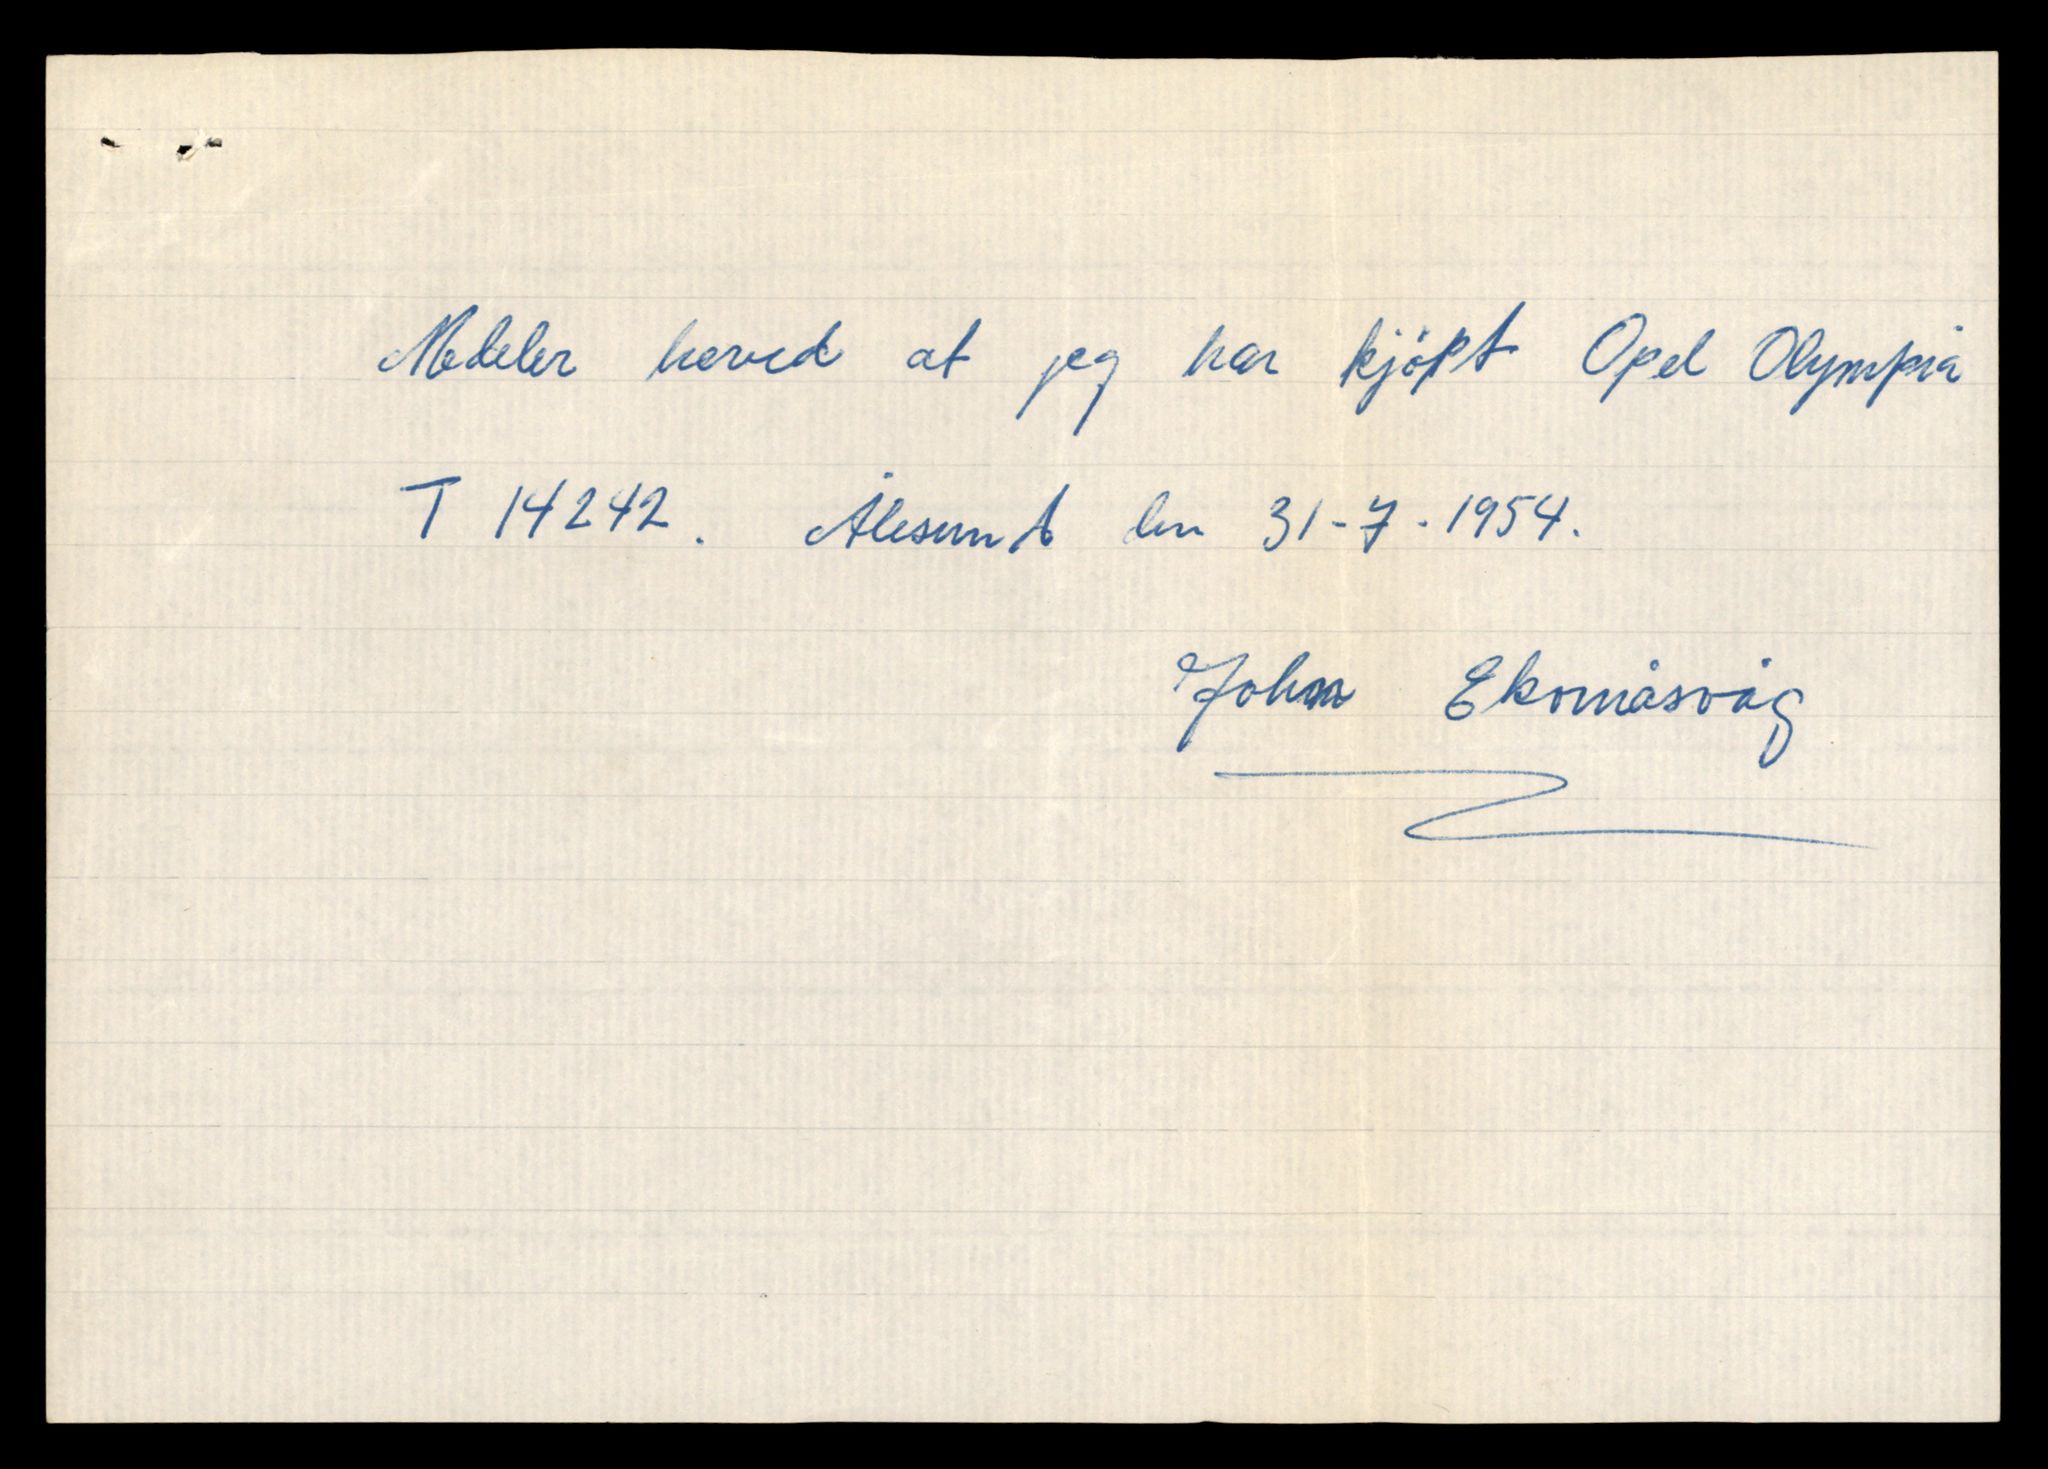 Medeler herved at jeg har kjöpt Opel Olympia
T 14242. Ålesund den 31-7-1954.
John Ekornåsvåg